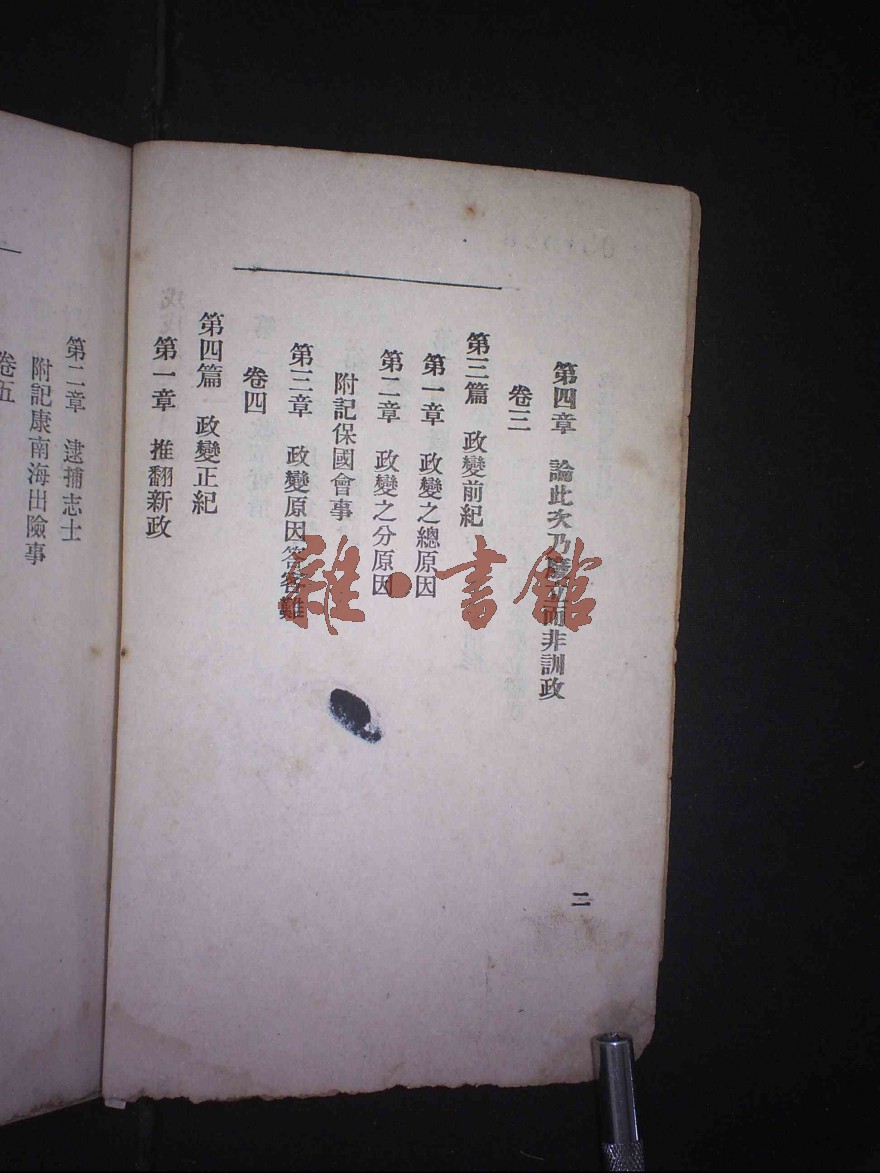 第四章 論此次乃廢立而非訓政
卷三
第三篇 政變前紀
第一章 政變之總原因
第二章 政變之分原因
附記保國會事
第三章 政變原因答客難
卷四
第四篇 政變正紀
第一章 推翻新政
二
第二章 逮捕志士
附記康南海出險事
卷五
雜·書館